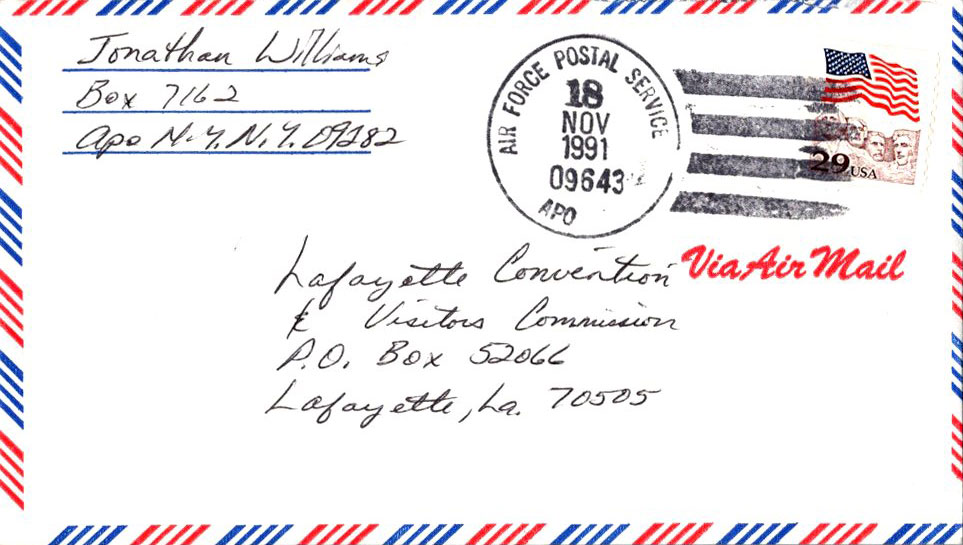 Jonathan Williams
Box 7162
Apo N.Y. N.Y. 09282
AIR FORCE POSTAL SERVICE
18
NOV
1991
09643
APO
29 USA
Via Air Mail
Lafayette Convention
& Visitors Commission
P.O. Box 52066
Lafayette, La. 70505